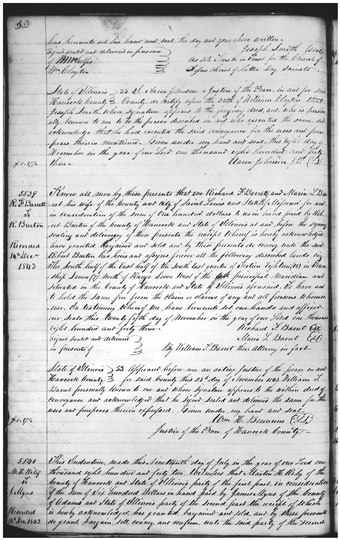 has hereunto set his hand and seal the day and year above written.
Signed sealed and delivered in presence
Joseph Smith (seal)
of
As Sole Trustee in trust for the Church of
Wm Clayton
Jesus Christ of Latter Day Saints
State of Illinois
Hancock County
Aaron Johnson a Justice of the Peace, in and for said
County, do certify upon the oath of William Clayton that
Joseph Smith whose signature appears to the
known to me to be the person described in and who executed the same, did
acknowledge that he had executed the said conveyance for the uses and pur-
poses therein mentioned. Given under my hand and seal, this
November in the year of our Lord one thousand eight hundred and forty
three.
Aaron Johnson
5839
R. F. Barrett
to
R. Burton
Recorded
14th Dec.
1843
Know all men by these presents that we Richard F. Barrett and Maria L. Bar-
ret, his wife of the County and City of Saint Louis and State of Missouri for and
in consideration of the sum of One hundred dollars to us in hand paid by Rob-
ert Burton of the County of Hancock and State of Illinois at and before the
sealing and delivery of these presents the receipt whereof is hereby acknowledged
have granted bargained and sold and by these presents do convey unto the said
Robert Burton his heirs and assigns forever all the following described lands viz
The South half of the East half of the South East quarter of Section Eighteen (18) in Town-
ship Seven (7) North of Range Seven West of the 4th principal Meridian and
situated in the County of Hancock and State of Illinois aforesaid. To have and
to hold the same free from the claim or claims of any and all persons whomso-
ever. In testimony whereof we have hereunto set our hands and affixed
our seals this Twenty fifth day of November in the year of our Lord one thousand
eight hundred and forty three
Signed sealed and delivered
Richard F. Barret
in presence of
Maria L. Barret
By William T. Barret their attorney in fact
State of Illinois
Hancock County
SS Appeared before me an acting Justice of the peace in and
for said County this 25th day of November 1843 William T.
Barret personally known to me and whose signature appears to the within deed of
conveyance and acknowledged that he signed sealed and delivered the same for the
uses and purposes therein expressed. Given under my hand and seal
Justice of the Peace of Hancock County
5840
to
Recorded
This Indenture, made this Seventeenth day of July in the year of our Lord one
thousand eight hundred and forty two, Witnesseth that Martin H.
County of Hancock and State of Illinois party of the first part, in consideration
of the sum of Six hundred Dollars in hand paid by James Myns of the County
of Adams and State of Illinois party of the second part the receipt of which
is hereby acknowledged has granted, bargained and sold, and by these presents
do grant, bargain sell, convey, and confirm, unto the said party of the second